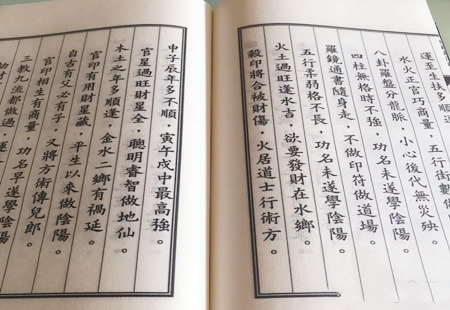 運至生扶多順
水火正官巧商量。五行術數
八卦羅盤分龍脈，小心後代無災殃。
四柱無格時不強。功名未遂學陰陽。
羅鏡通書隨身走，不做印符做道場。
五行柔弱格不長。功名未遂學陰陽。
火土過旺逢水吉，欲要發財在水鄉。
殺印將合被財傷，火居道士行術方。
申子辰年多不順，寅午戌中最高強。
官星過旺財星全，聰明睿智做地仙。
未土之年多順逢，金水二鄉有禍延。
官印有用財星藏，平生以來做陰陽。
自古有父必有子，又將方術傳兒郎。
官印相生有商量，功名早遂學陰陽。
三教九流都做過，運